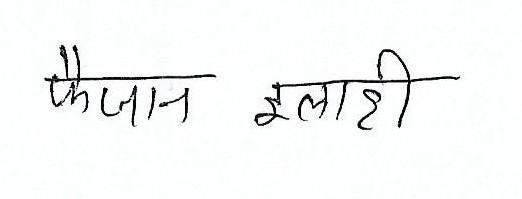 फैजान इलाही